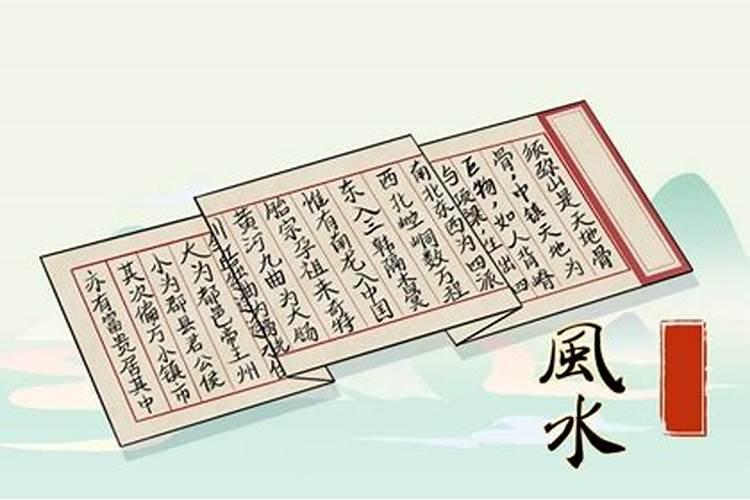 须弥山是天地骨
骨，中镇天地为
巨物，如人背脊
与项梁，生出四
南北东西为四派
西北崆峒数万程
东入三韩隔杳冥
惟有南龙入中国
胎宗孕祖来奇特
黄河九曲为大肠
川
大为都邑帝王州
小为郡县君公侯
其次偏方小镇市
亦有富贵居其中
風水